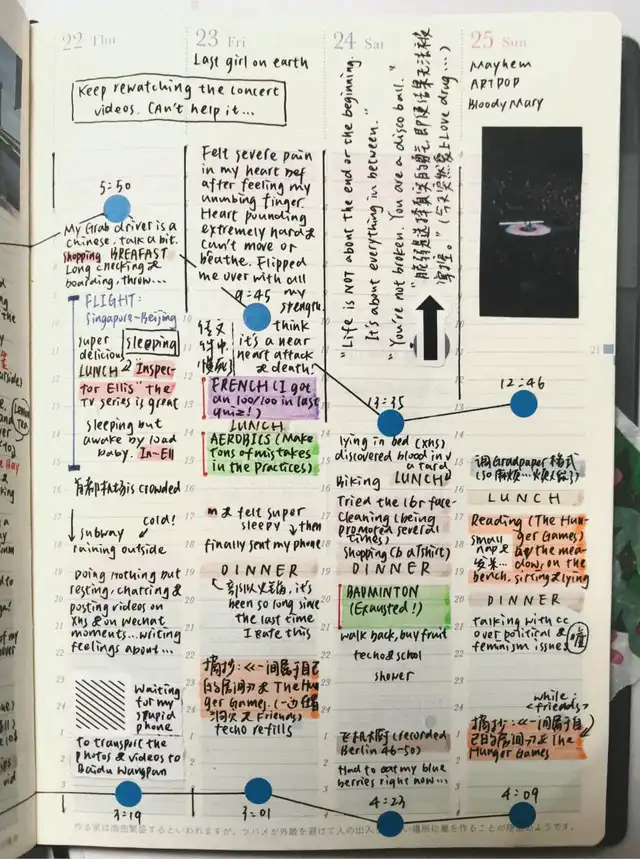 22 Thu
Keep rewatching the concert
videos. Can't help it...
5:50
My Grab driver is a
chinese. talk a bit.
shopping BREAFAST
Long checking &
boarding, throw...
FLIGHT:
Singapore-Beijing
super
delicious
LUNCH
sleeping
& Inspec-
tor Ellis" the
TV series is great
sleeping but
awake by load
baby. In-Ell
首都机场 is crowded
cold!
subway
raining outside
Doing nothing but
resting, chatting &
posting videos on
xhs & on wechat
moments... writing
feelings about...
Waiting
for my
stupid
phone
to transport the
photos & videos to
Baidu Wangpan
3:19
23 Fri
Last girl on earth
Felt severe pain
in my heart bef
after feeling my
numbing finger.
Heart pounding
extremely hard &
can't move or
beathe. Flipped
me over with all
my
strength.
9:45
think
it's a near
heart attack
& death!
FRENCH (I got
an 100/100 in last
quiz!)
LUNCH
AEROBICS (Make
tons of mistakes
in the Practices)
felt super
sleepy then
finally sent my phone
DINNER
it's
been so long since
the last time
I ate this
摘抄:《一间属于自己
的房间》& The Hun
ger Games.
Friends)
techo refills
3:01
24 Sat
"Life is NOT about the end or the beginning.
It's about everything in between."
"You're not broken. You are a disco ball."
13:35
lying in bed (xhs)
discovered blood in
a turd
Biking LUNCH
Tried the 16r face-
Cleaning (being
promoted several
times)
Shopping (b a Tshirt)
DINNER
BADMINTON
(Exausted!)
walk back, buy fruit
techo & schol
shower
飞机大厨 (recorded
Berlin 46-50)
Had to eat my blue
berries right now...
4:23
25 Sun
Mayhem
ARTPOP
Bloody Mary
21
12:46
调Gradpaper格式
LUNCH
Reading (The Hun-
ger Games)
small
nap &
by the mea-
dow, on the
bench, sitting & lying
DINNER
talking with cc
over political &
feminism issues
while:
<friends>
摘抄:《一间属于自
己的房间》& The
Hunger Games
4:09